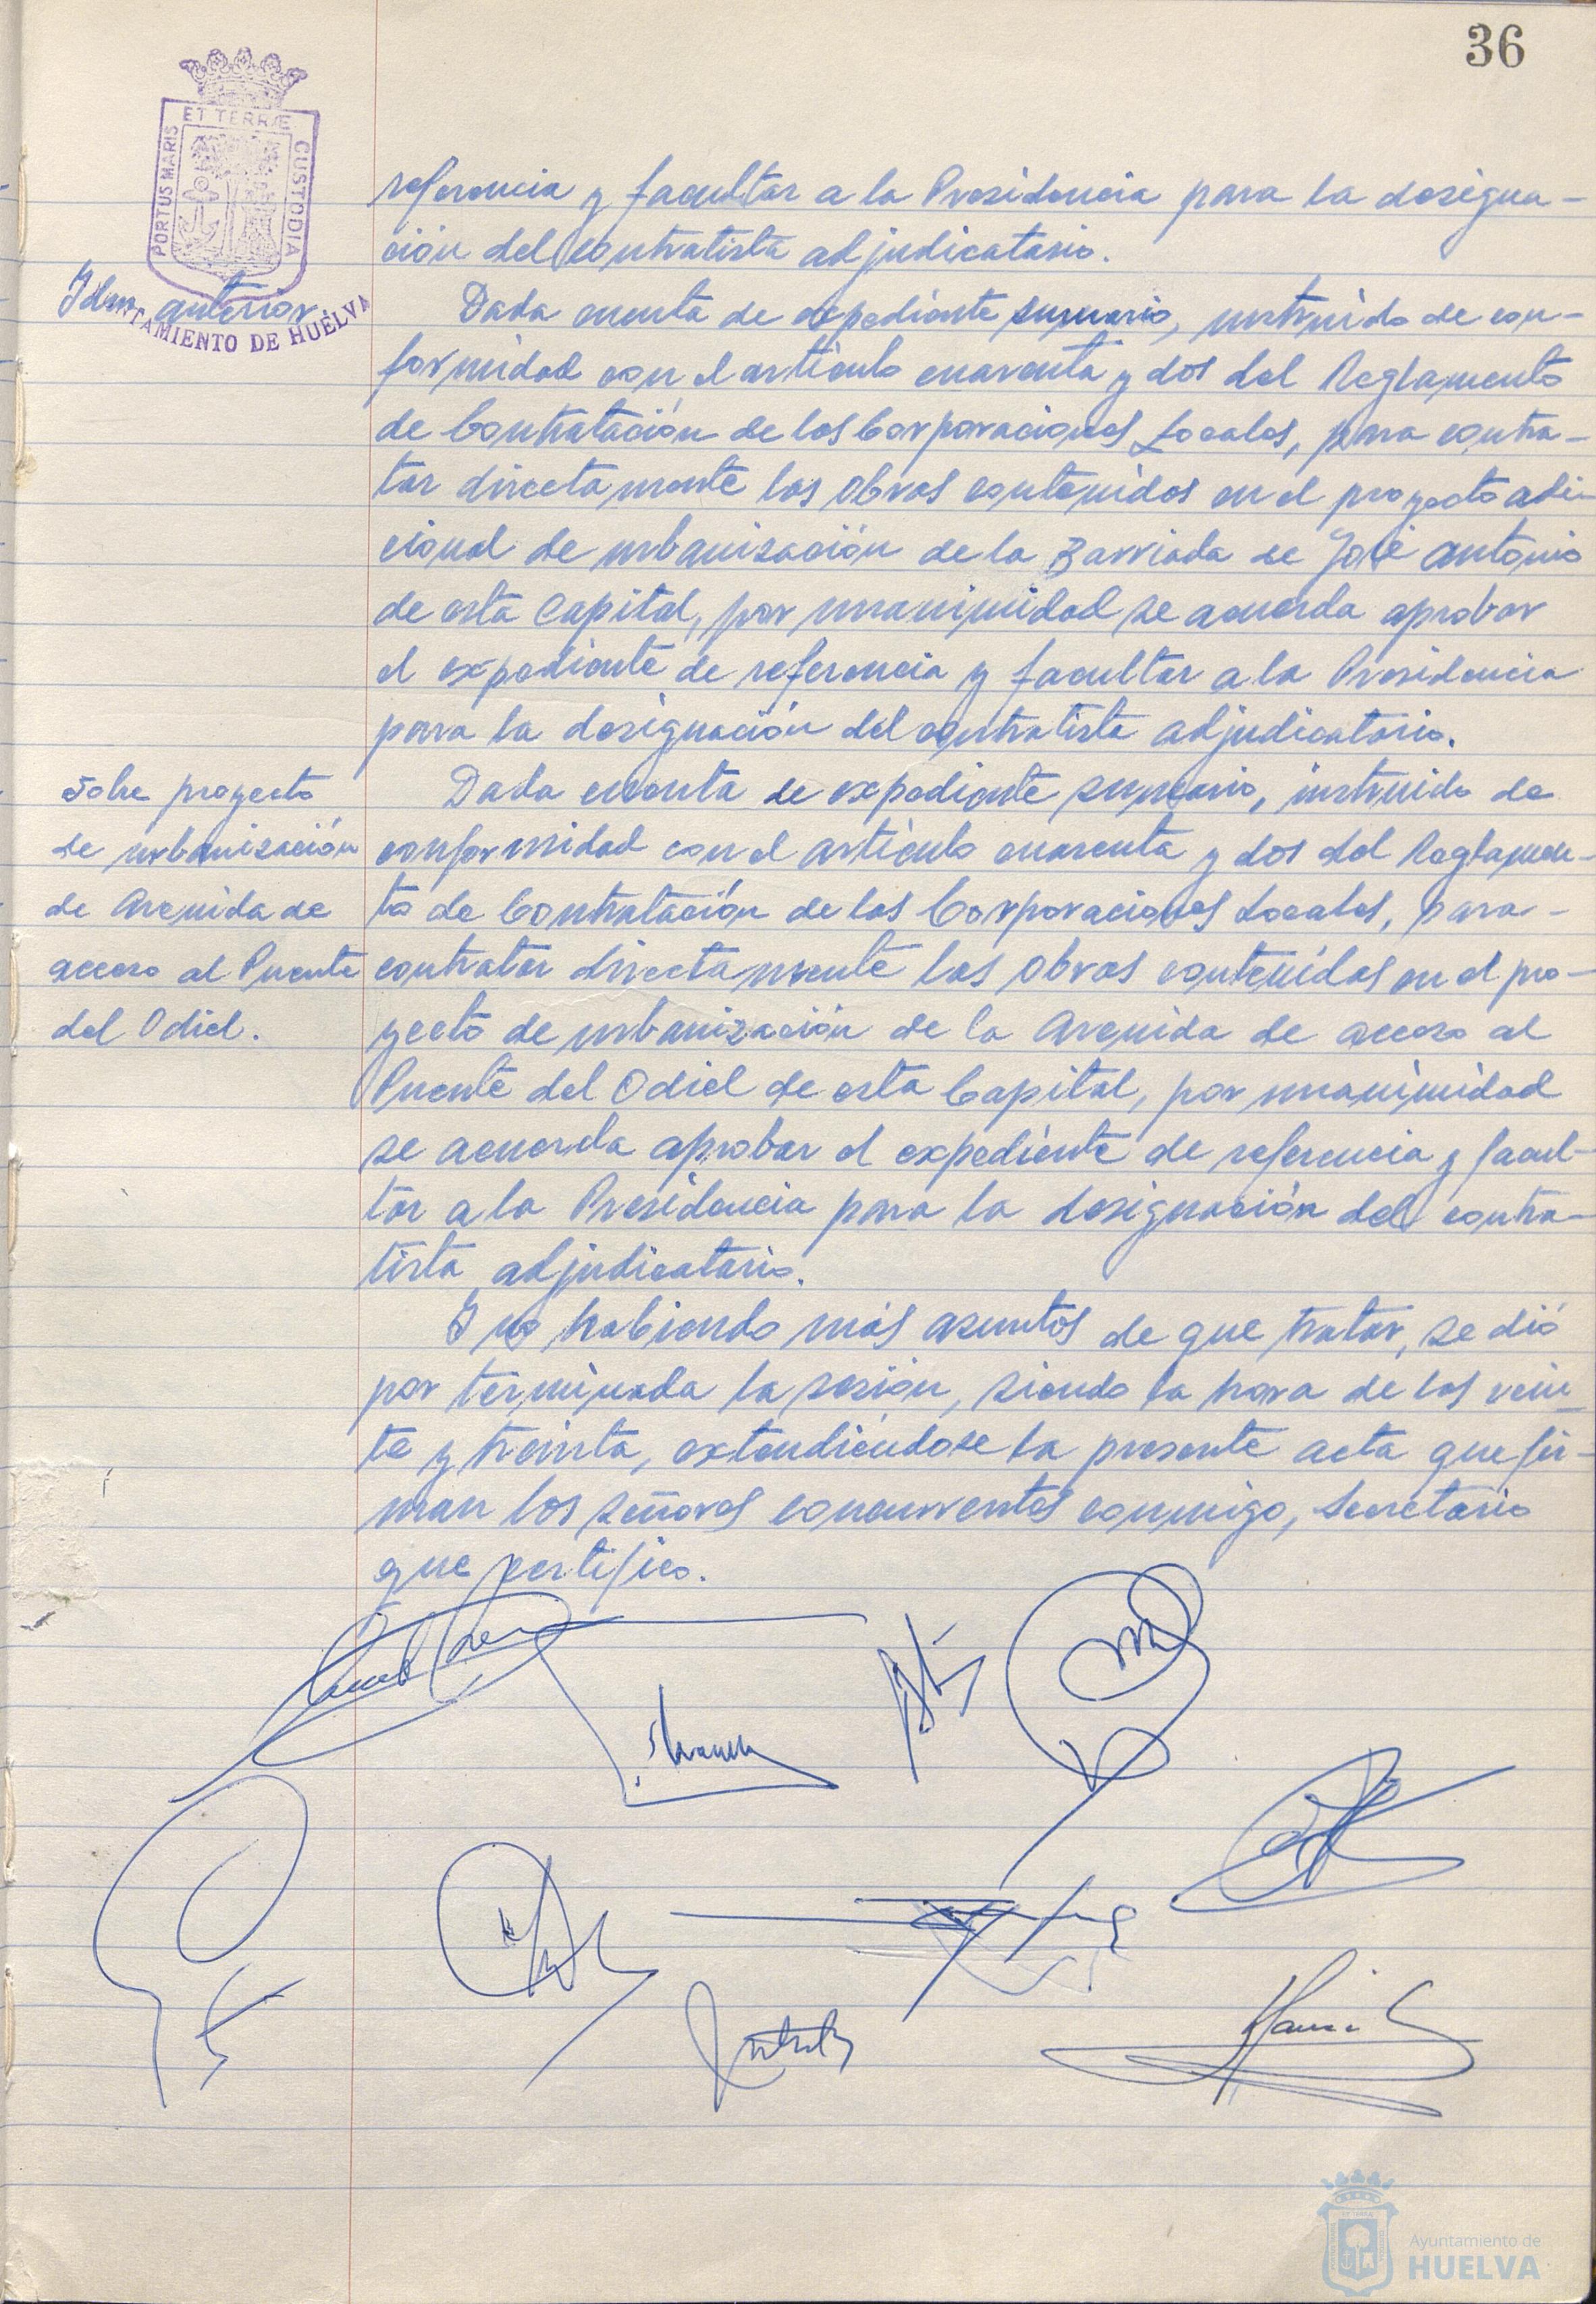 36
ET TERRÆ
PORTUS MARIS
CUSTODIA
AYUNTAMIENTO DE HUELVA
referencia y facultar a la Presidencia para la designa-
ción del contratista adjudicatario.
Idem anterior.
Dada cuenta de expediente sumario, instruido de con-
formidad con el artículo cuarenta y dos del Reglamento
de Contratación de las Corporaciones Locales, para contra-
tar directamente las obras contenidas en el proyecto adi-
cional de urbanización de la Barriada de José Antonio
de esta Capital, por unanimidad se acuerda aprobar
el expediente de referencia y facultar a la Presidencia
para la designación del contratista adjudicatario.
Sobre proyecto
de urbanización
de Avenida de
acceso al Puente
del Odiel.
Dada cuenta de expediente sumario, instruido de
conformidad con el artículo cuarenta y dos del Reglamen-
to de Contratación de las Corporaciones Locales, para-
contratar directamente las obras contenidas en el pro-
yecto de urbanización de la Avenida de acceso al
Puente del Odiel de esta Capital, por unanimidad
se acuerda aprobar el expediente de referencia y facul-
tar a la Presidencia para la designación del contra-
tista adjudicatario.
Y no habiendo más asuntos de que tratar, se dió
por terminada la sesión, siendo la hora de las vein-
te y treinta, extendiéndose la presente acta que fir-
man los señores concurrentes conmigo, Secretario
que certifico.
Ayuntamiento de
HUELVA